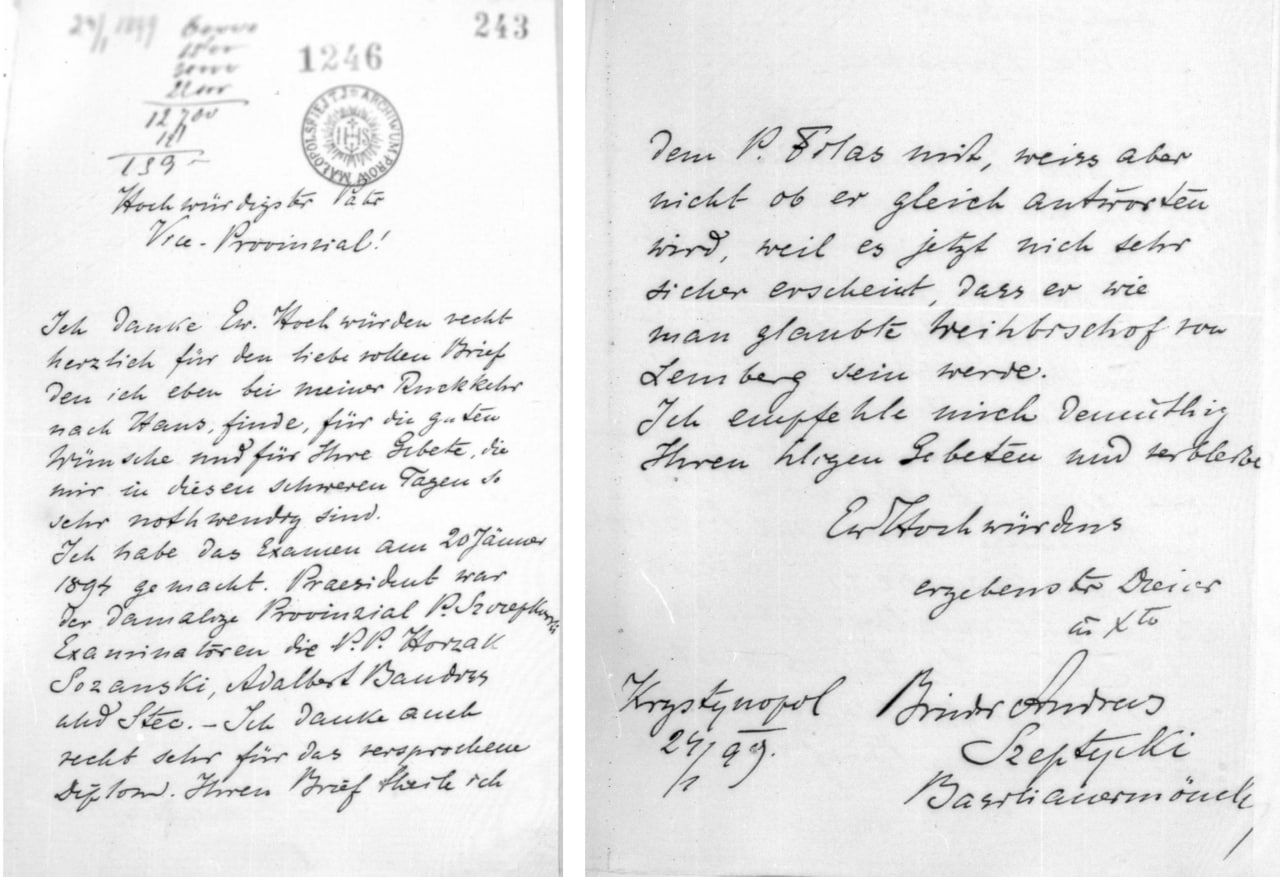 243
24/1 1899
1246
12700
139-
ARCHIWUM PROW. MAŁOPOLSKIEJ T.J.
IHS
Hochwürdigster Pater
Vice-Provinzial!
Ich danke Ew. Hochwürden recht
herzlich für den liebevollen Brief
den ich eben bei meiner Ruckkehr
nach Haus, finde, für die guten
Wünsche und für Ihre Gebete, die
mir in diesen schweren Tagen so
sehr nothwendig sind.
Ich habe das Examen am 20 Jänner
1894 gemacht. Praesident war
der damalige Provinzial P. Szczepkowski
Examinatoren die P.P. Horzak
Sozanski, Adalbert Baudiss
und Stec. – Ich danke auch
recht sehr für das versprochene
Diplom. Ihren Brief theile ich
dem P. Filas mit, weiss aber
nicht ob er gleich antworten
wird, weil es jetzt nich sehr
sicher erscheint, dass er wie
man glaubte Weihbischof von
Lemberg sein werde.
Ich empfehle mich demüthig
Ihren hligen Gebeten und verbleibe
Ew Hochwürdens
ergebenster Diener
in Xto
Krystynopol
24/1 99.
Bruder Andreas
Szeptycki
Basilianermönch